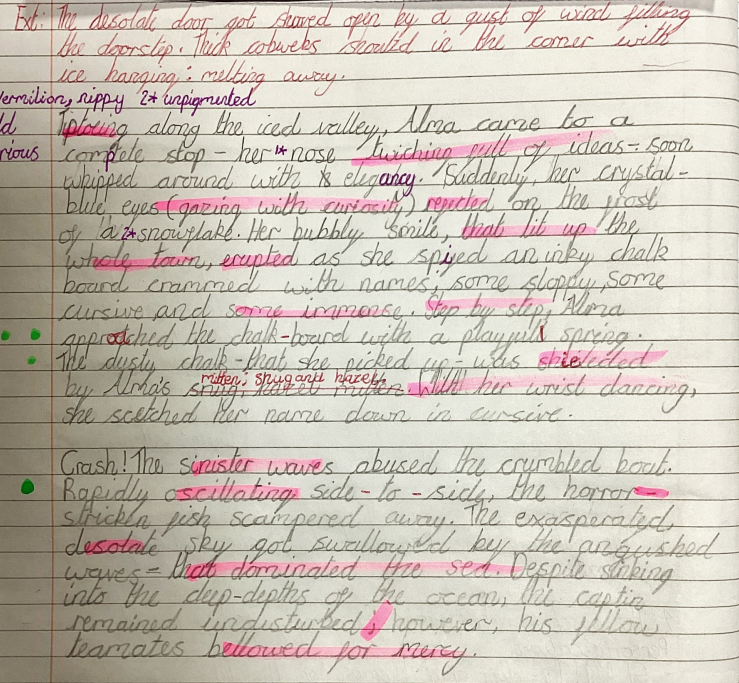 Ext: The desolate door got shoved open by a gust of wind filling
the doorstep. Thick cobwebs should in the corner with
ice hanging: melting away.
ermilion, nippy 2* unpigmented
Tiptoeing along the iced valley, Alma came to a
complete stop - her 1* nose twiching full of ideas - soon
rious
whipped around with elegancy. Suddenly, her crystal-
blue eyes (gazing with curiosity) rejected on the frost
of a 2* snowflake. Her bubbly smile, that lit up the
whole town, erupted as she spyed an inky chalk
board crammed with names, some sloppy, some
cursive and some immense. Step by step, Alma
approatched the chalk-board with a playfull spring.
The dusty chalk - that she picked up - was shieleded
mitten, snug and hazel,
by Alma's snug, hazel mitten. With her wrist dancing,
she scetched her name down in cursive.
Crash! The sinister waves abused the crumbled boat.
Rapidly oscillating side-to-side, the horror-
stricken fish scampered away. The exasperated,
desolate sky got swallowed by the anguished
waves - that dominated the sea. Despite sinking
into the deep-depths of the ocean, the captin
remained undisturbed; however, his fellow
teamates bellowed for mercy.